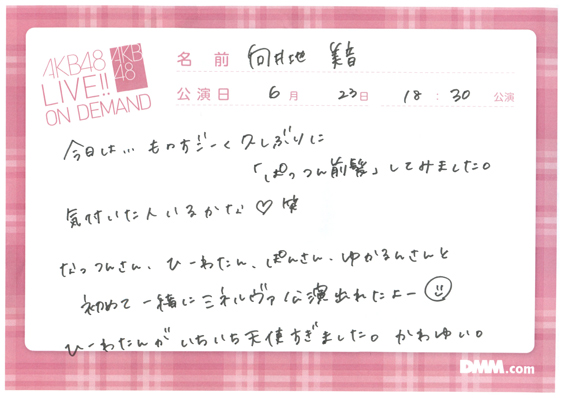 AKB48
LIVE!!
ON DEMAND
AKB
48
名 前 向井地 美音
公演日 6月 23日 18:30 公演
今日は… ものすごーく久しぶりに
「ぱっつん前髪」してみました。
気付いた人いるかな♡笑
なっつんさん、ひーわたん、ぱんさん、ゆかるんさんと
初めて一緒にミネルヴァ公演出れたよー☺
ひーわたんがいちいち天使すぎました。かわゆい。
DMM.com